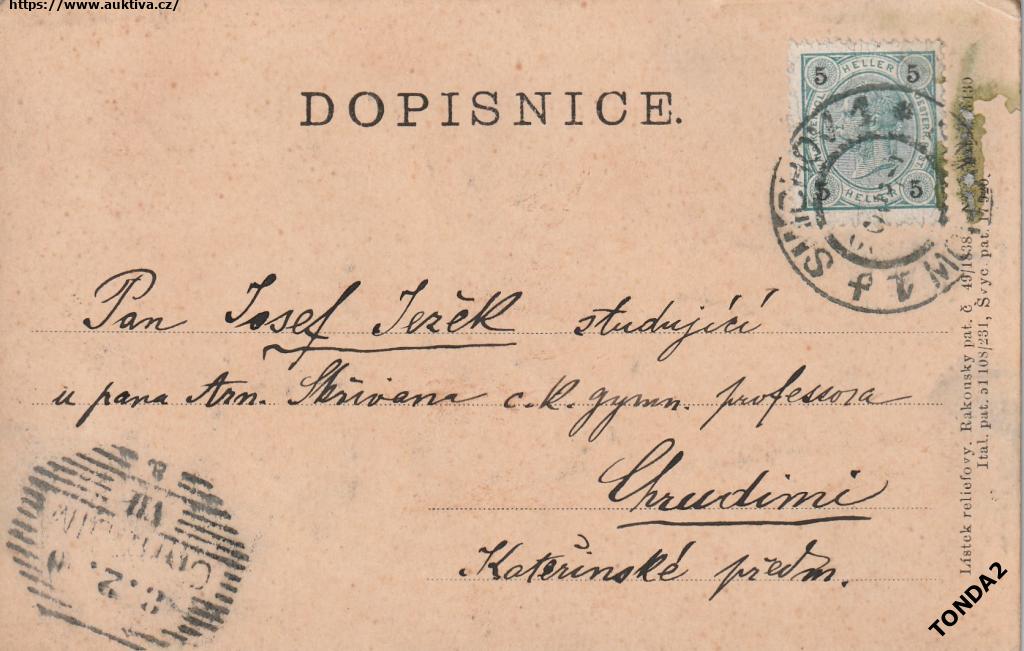 https://www.auktiva.cz/
DOPISNICE.
5 HELLER 5
5 HELLER 5
SMICHOV 1
Pan Josef Ježek studující
u pana Arn. Skřivana c. k. gymn. professora
Chrudimi
Kateřinské předm.
Lístek reliefovy. Rakousky pat. č 49/1838,
Ital. pat. 51108/231, Švyc. pat.
TONDA2